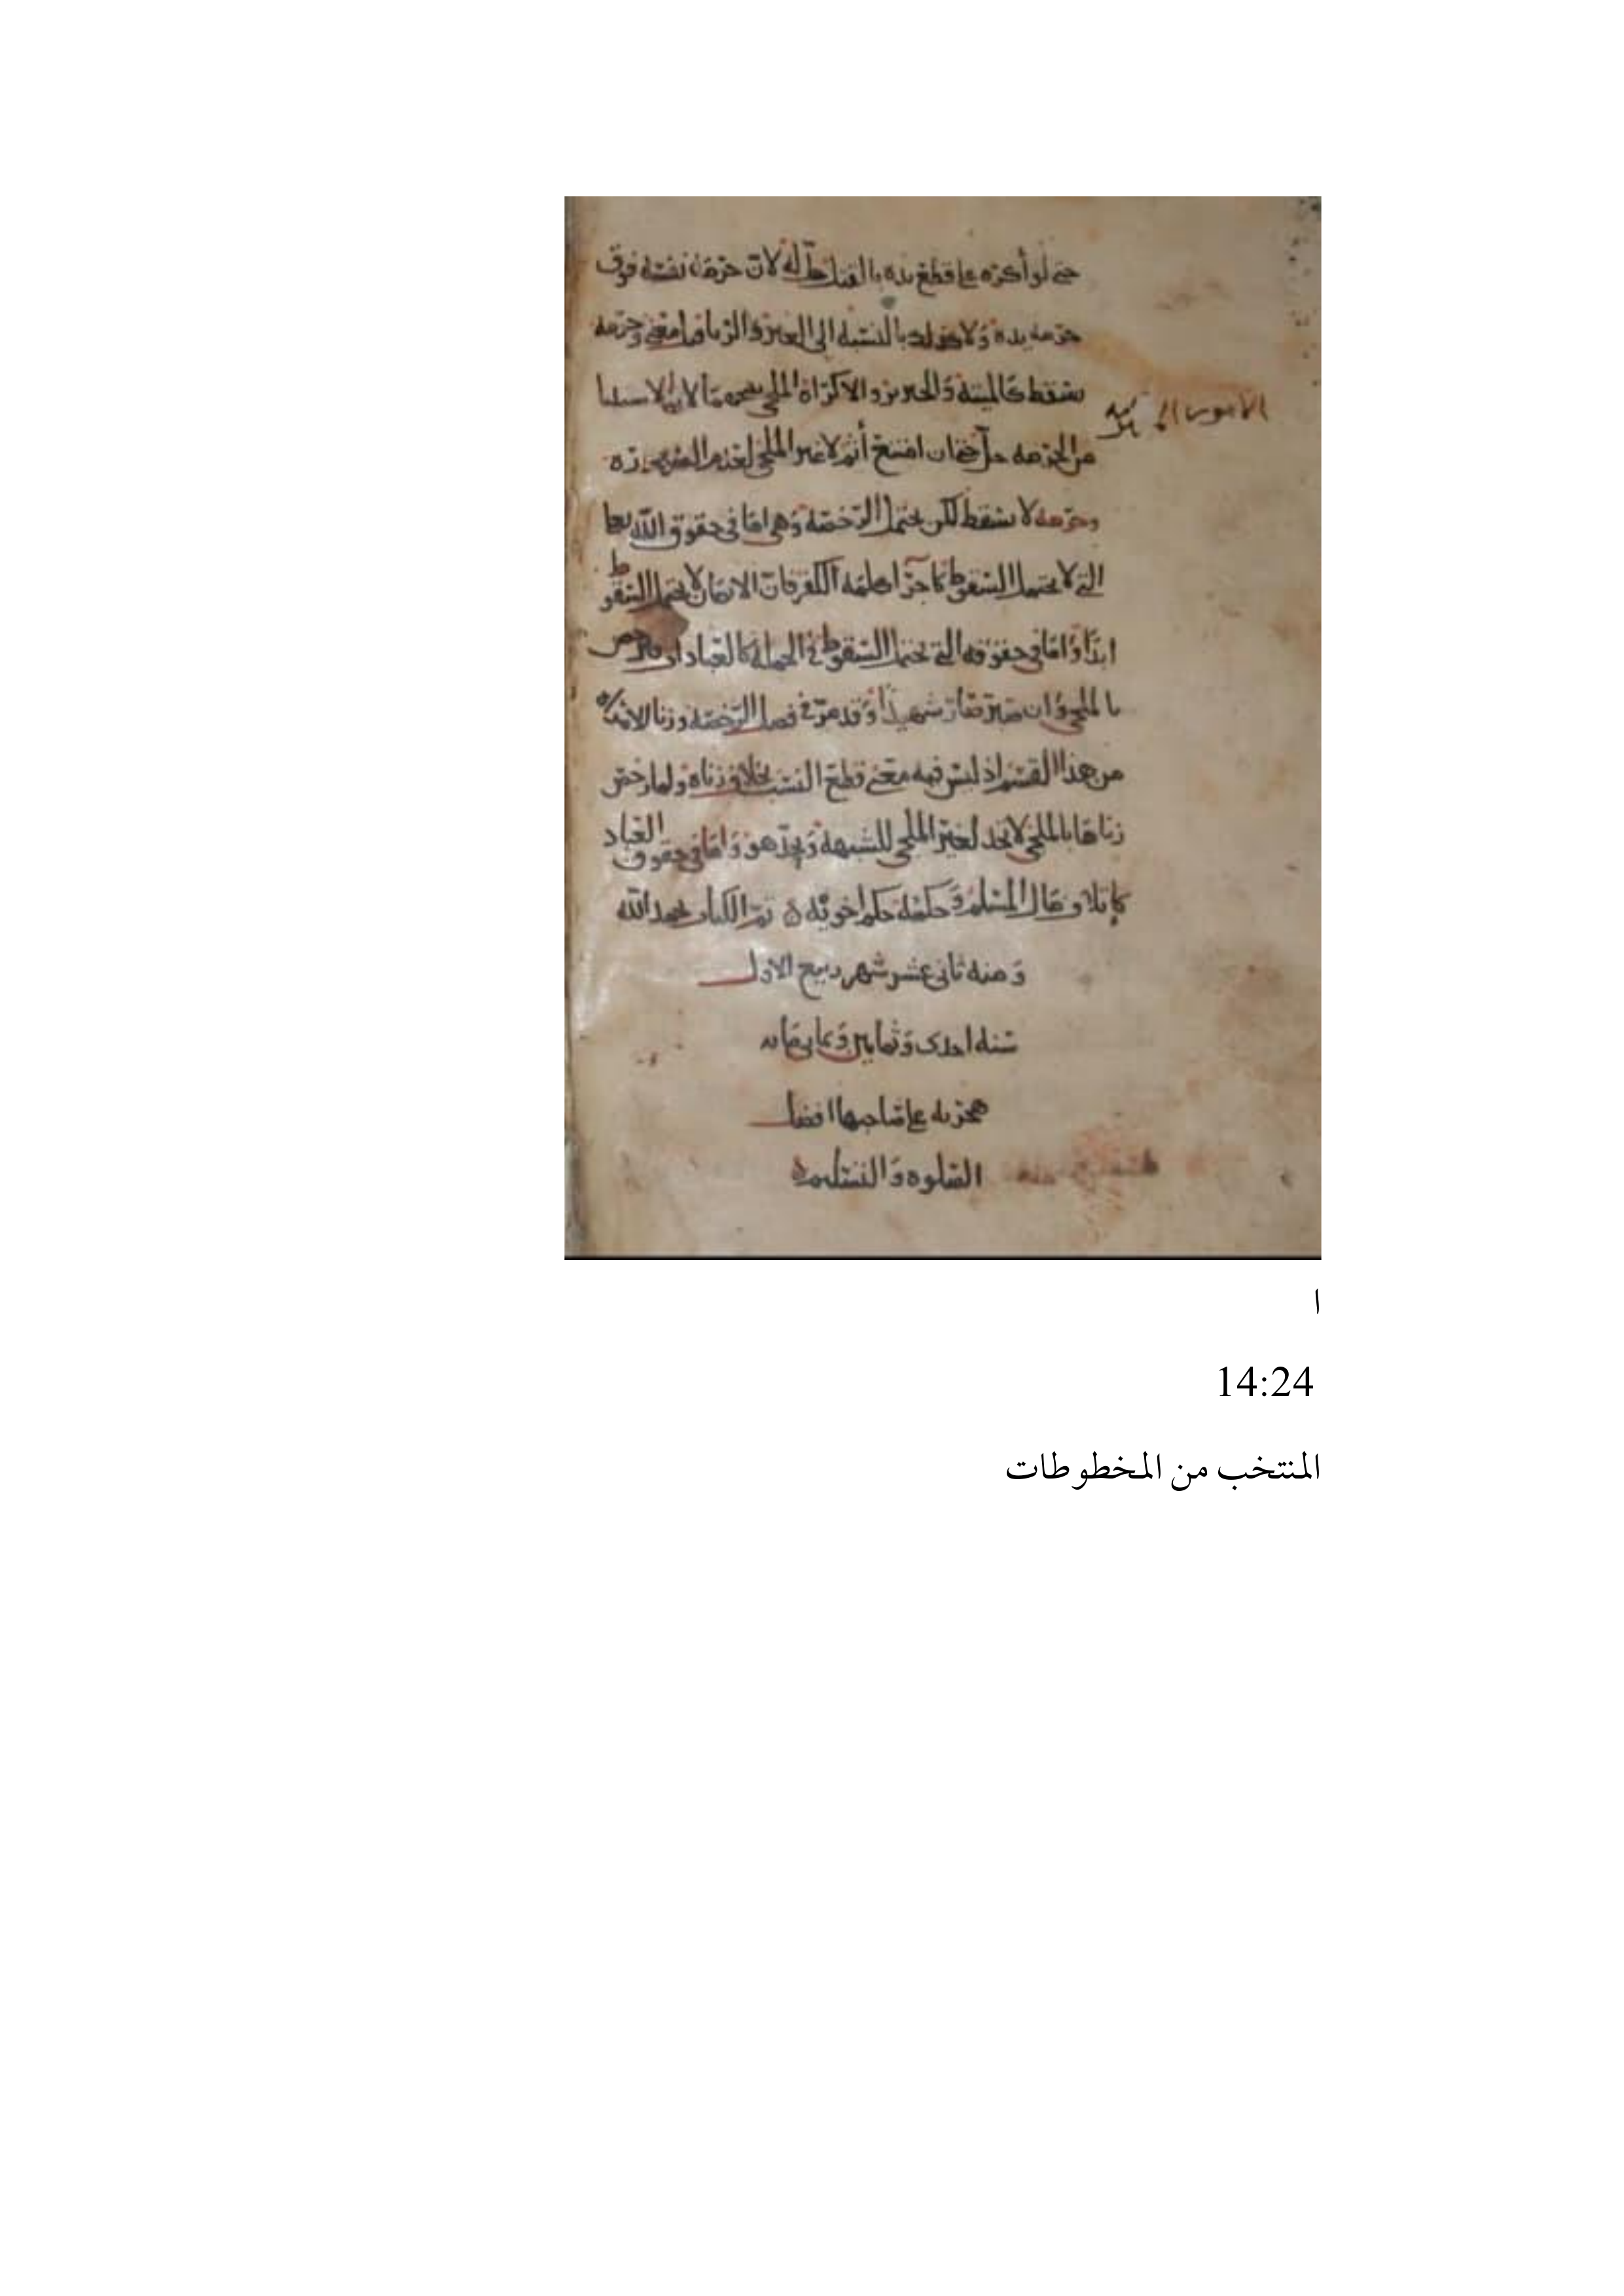 حتى لو أكره على قطع يده بالقتل حل له لان حرمة نفسه فوق
حرمة يده ولا كذلك بالنسبة الى الغير والزنا قتل معنى وحرمة
تسقط كالميتة والخمر والاكراه الملجئ يبيحها لان الاستثنا
من الحرمة حل حتى ان امتنع أثم لا غير الملجئ لعدم الضرورة
وحرمة لا تسقط لكن تحتمل الرخصة وهي اما في حقوق الله تعا
التي لا تحتمل السقوط كاجرا كلمة الكفر فان الايمان لا يحتمل السقوط
ابدا واما في حقوقه التي تحتمل السقوط في الجملة كالعبادات فيرخص
بالملجئ وان صبر صار شهيدا وقد مر في فصل الرخصة وزنا المرأة
من هذا القسم اذ ليس فيه معنى قطع النسب بخلاف زناه ولما رخص
زناها بالملجئ لا تحد لغير الملجئ للشبهة ويحد هو واما في حقوق العباد
كاتلاف مال المسلم وحكمه حكم اخويه تم الكتاب بحمد الله
ومنه ثاني عشر شهر ربيع الاول
سنه احدى وثمانين وثماني مايه
هجريه على صاحبها افضل
الصلوه والتسليم
ا
14:24
المنتخب من المخطوطات